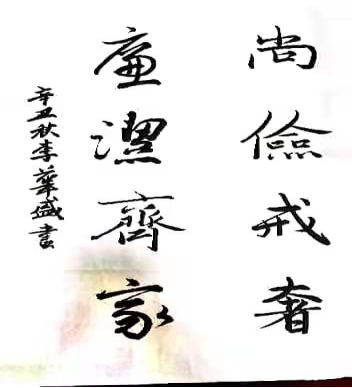 尚儉戒奢
廉潔齊家
辛丑秋李華盛書